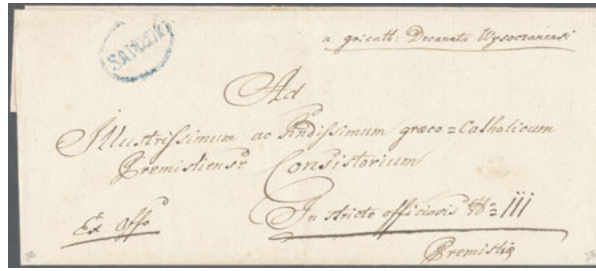 SAMBOR
a gr: cath: Decanatu Wysoczanensi
Ad
Illustrissimum ac Rndissimum graeco=Catholicum
Premisliense Consistorium
Ex Offo
In stricte officiosis No III
Premisliæ